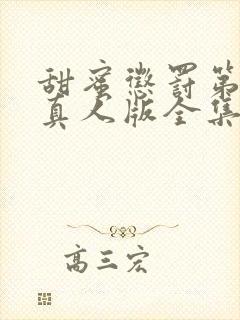 甜蜜懲罰第
真人版全集
高三宏